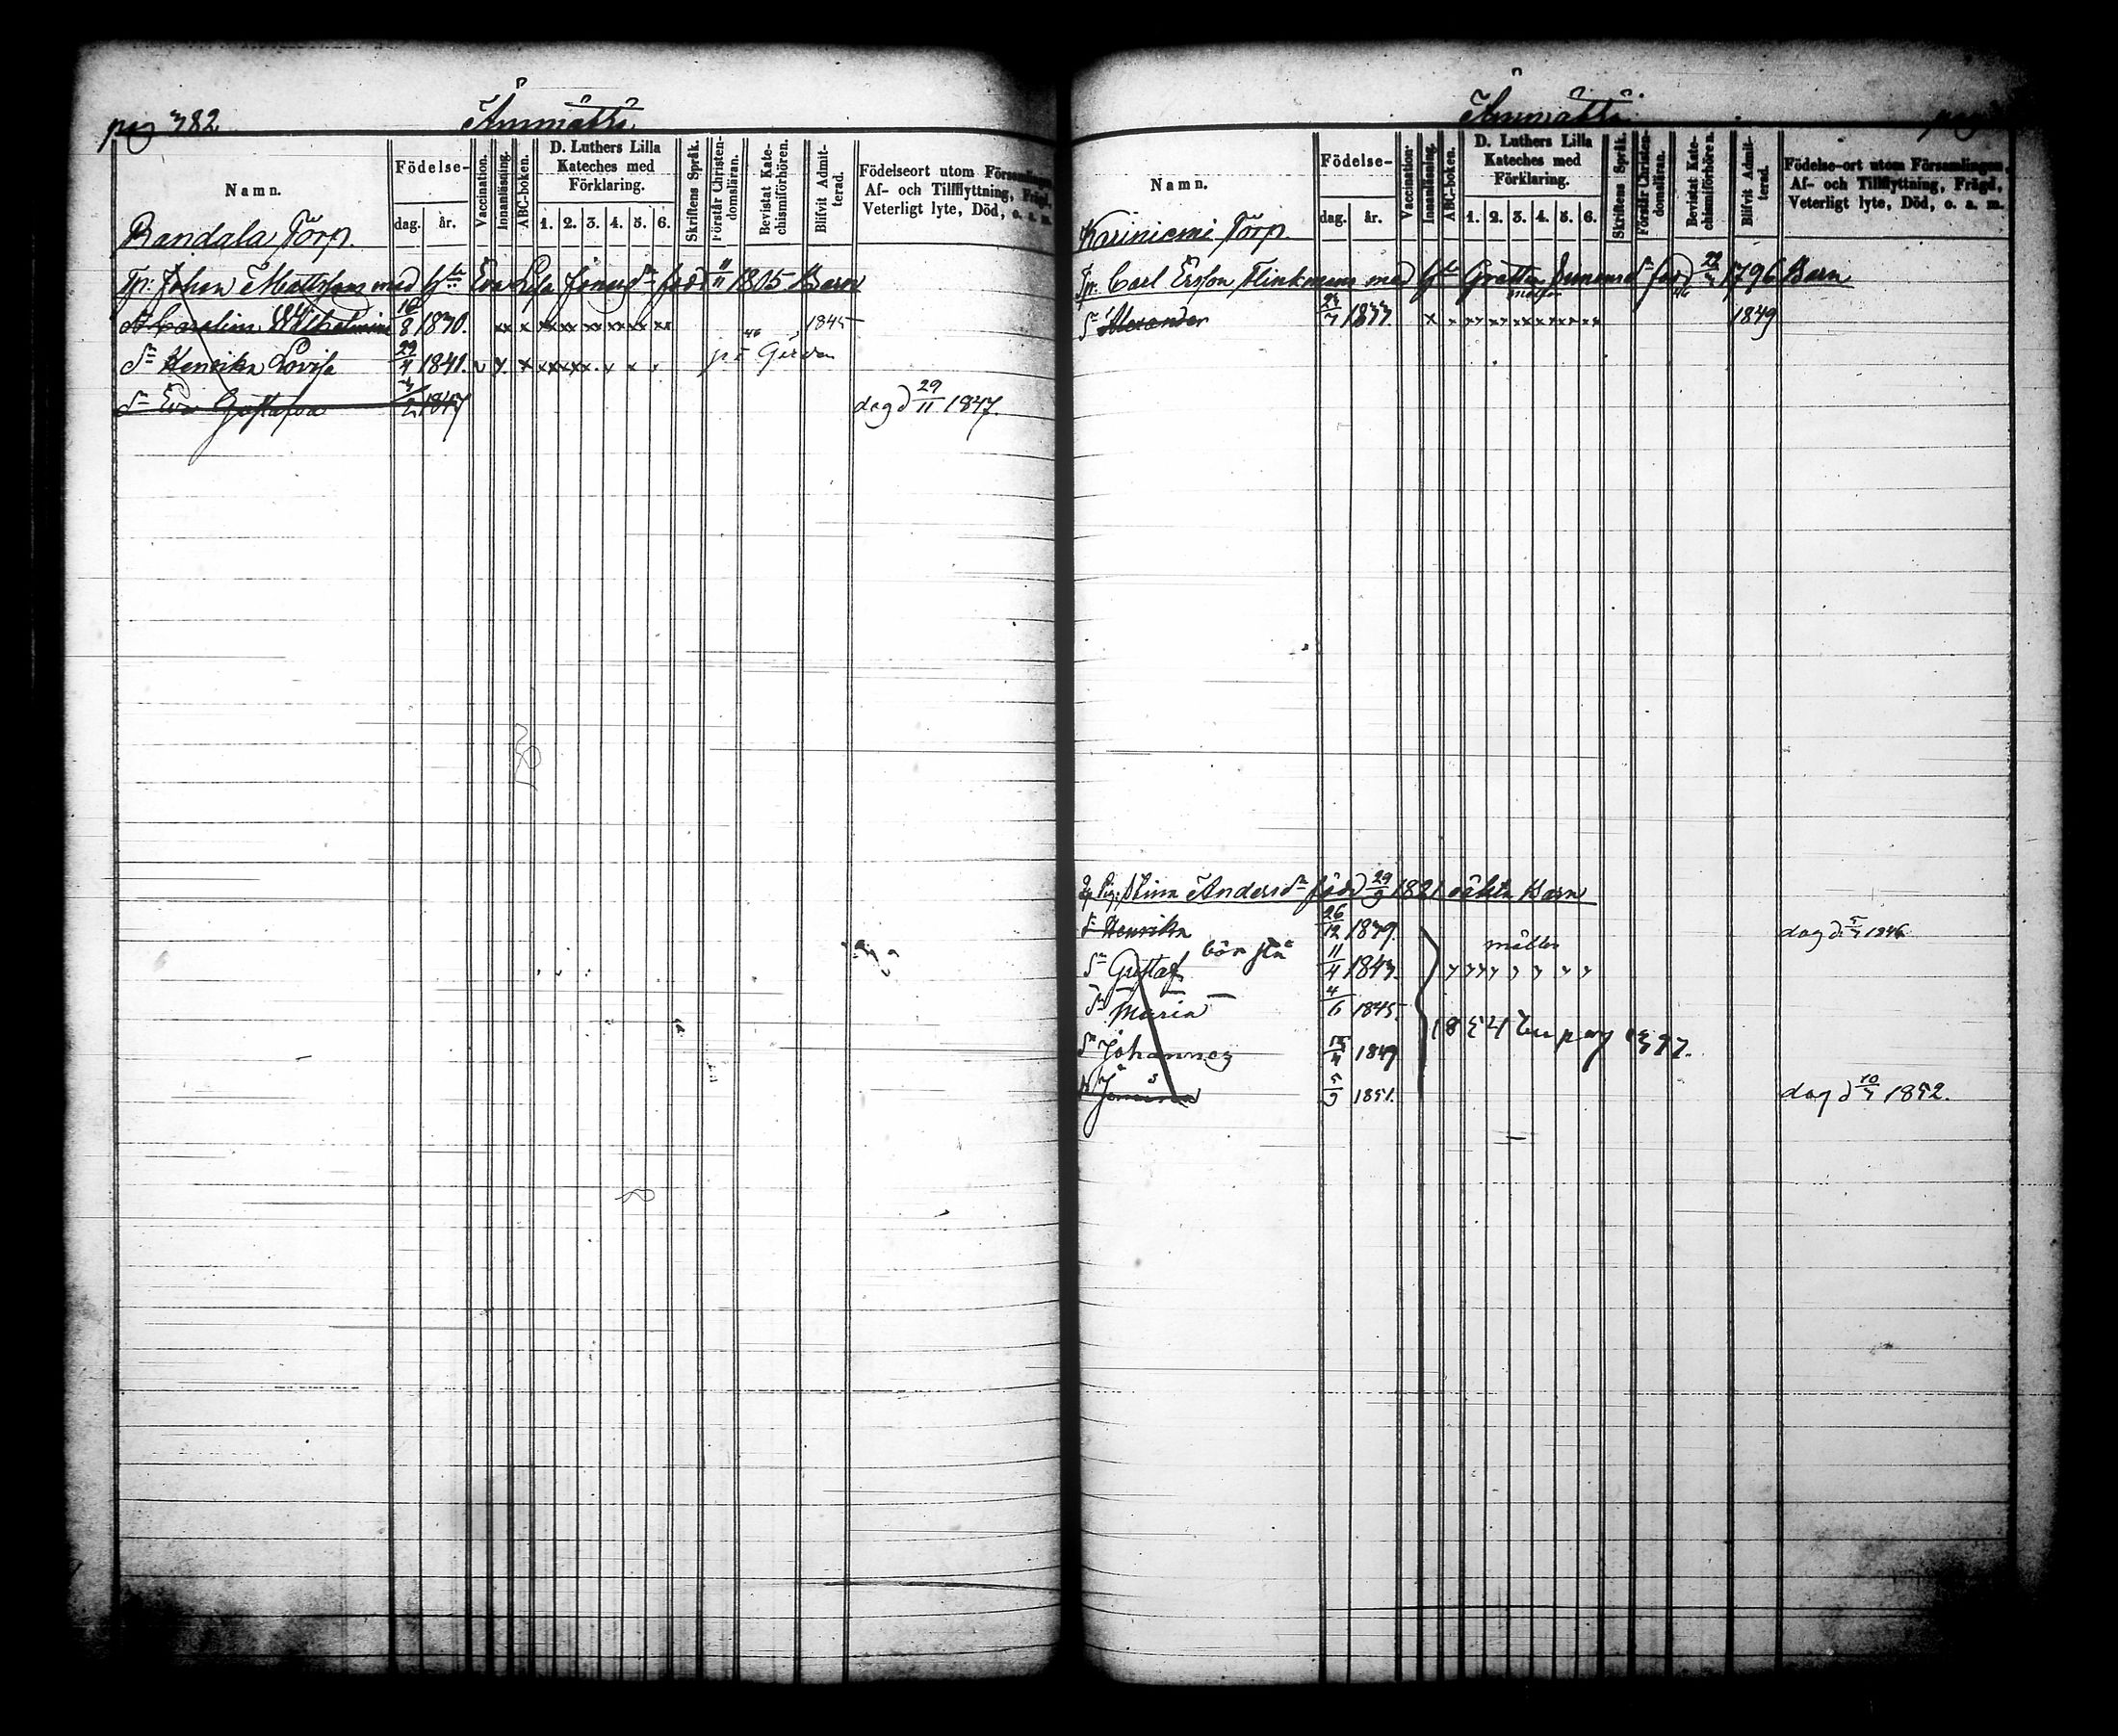 pag 382
Ämmättä
Namn.
Födelse-
dag.
år.
Vaccination.
Innanläsning.
ABC-boken.
D. Luthers Lilla
Kateches med
Förklaring.
1. 2. 3. 4. 5. 6.
Skriftens Språk.
Förstår Christen-
domsläran.
Bevistat Kate-
chismiförhören.
Blifvit Admit-
terad.
Födelseort utom Församlingen,
Af- och Tillflyttning, Frägd,
Veterligt lyte, Död, o. a. m.
Randala Torp.
Tp: Johan Mattsson med h:u Eva Lisa Jonasd:r född 11/11 1805 Barn
Carolina Wilhelmina 16/8 1830. 1845
Henrika Lovisa 29/4 1841.
Eva Gustafva 1847 dog d 29/11 1847.
Ämmättä
Namn.
Födelse-
dag.
år.
Vaccination.
Innanläsning.
ABC-boken.
D. Luthers Lilla
Kateches med
Förklaring.
1. 2. 3. 4. 5. 6.
Skriftens Språk.
Förstår Christen-
domsläran.
Bevistat Kate-
chismiförhören.
Blifvit Admit-
terad.
Födelse-ort utom Församlingen,
Af- och Tillflyttning, Frägd,
Veterligt lyte, Död, o. a. m.
Kariniemi Torp
Tp: Carl Ersson Flinkman med h:u Gretta född 1796 Barn
Alexander 1833 1849
Stina Andersd:r född 29/9 1821 oäkta Barn
Henrika 26/12 1839 dog d. 1846
Gustaf bör stå 11/4 1843.
Maria 4/6 1845
Johannes 1849
1851. dog d 10/3 1852.